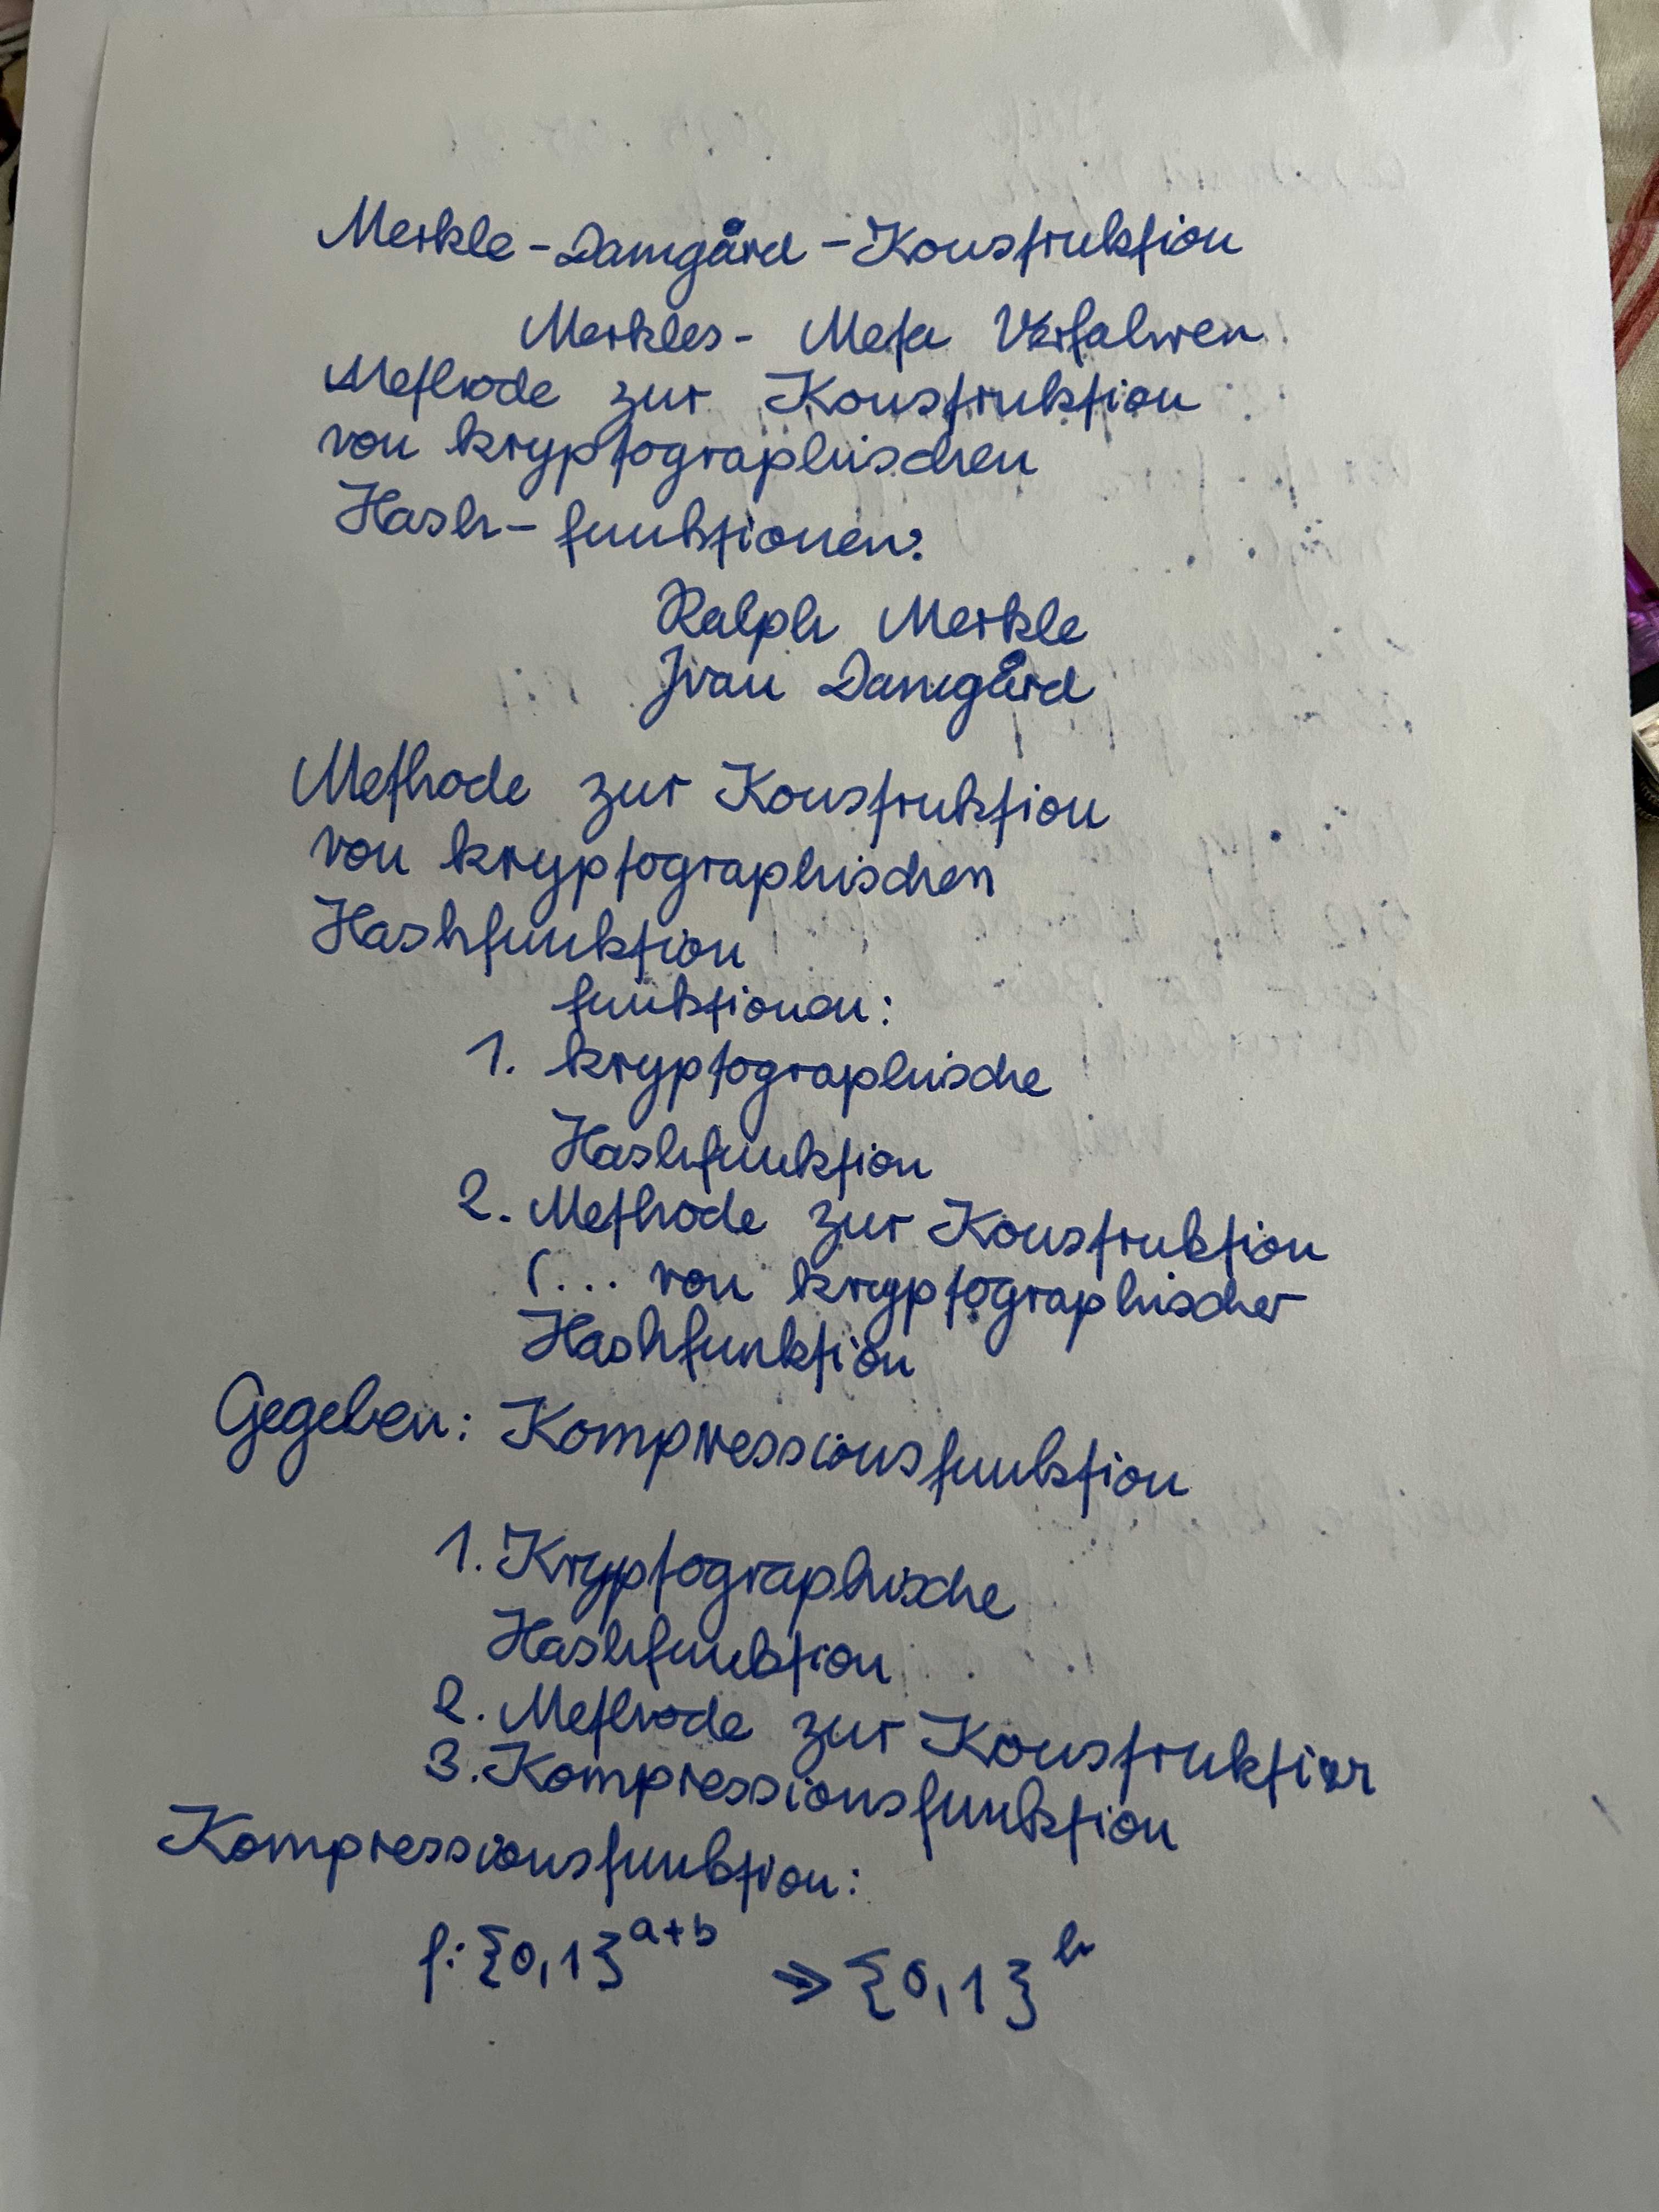 Merkle-Damgård-Konstruktion
Merkles- Meta Verfahren
Methode zur Konstruktion
von kryptographischen
Hash-funktionen:
Ralph Merkle
Ivan Damgård
Methode zur Konstruktion
von kryptographischen
Hashfunktion
funktionen:
1. kryptographische
Hashfunktion
2. Methode zur Konstruktion
(... von kryptographischer
Hashfunktion
Gegeben: Kompressionsfunktion
1. Kryptographische
Hashfunktion
2. Methode zur Konstruktion
3. Kompressionsfunktion
Kompressionsfunktion:
f: {0,1}^a+b => {0,1}^